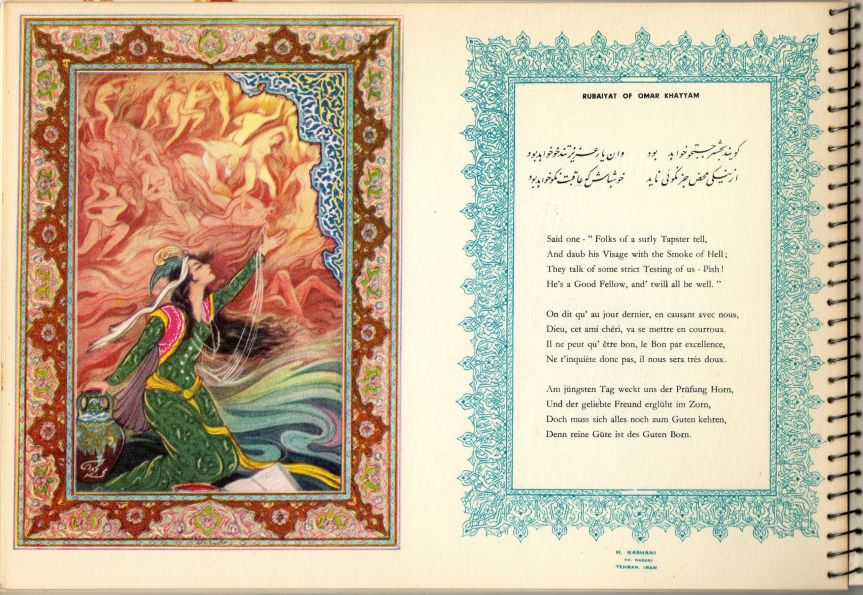 RUBAIYAT OF OMAR KHAYYAM
گویند بحشر جستجو خواهد بود وان یار عزیز تندخو خواهد بود
از نیکی محض جز نکوئی ناید خوشباش که عاقبت نکو خواهد بود
Said one - " Folks of a surly Tapster tell,
And daub his Visage with the Smoke of Hell;
They talk of some strict Testing of us - Pish!
He's a Good Fellow, and' twill all be well. "
On dit qu' au jour dernier, en causant avec nous,
Dieu, cet ami chéri, va se mettre en courroux.
Il ne peut qu' être bon, le Bon par excellence,
Ne t'inquiète donc pas, il nous sera très doux.
Am jüngsten Tag weckt uns der Prüfung Horn,
Und der geliebte Freund erglüht im Zorn,
Doch muss sich alles noch zum Guten kehren,
Denn reine Güte ist des Guten Born.
H. KASHANI
AV. NADERI
TEHRAN. IRAN